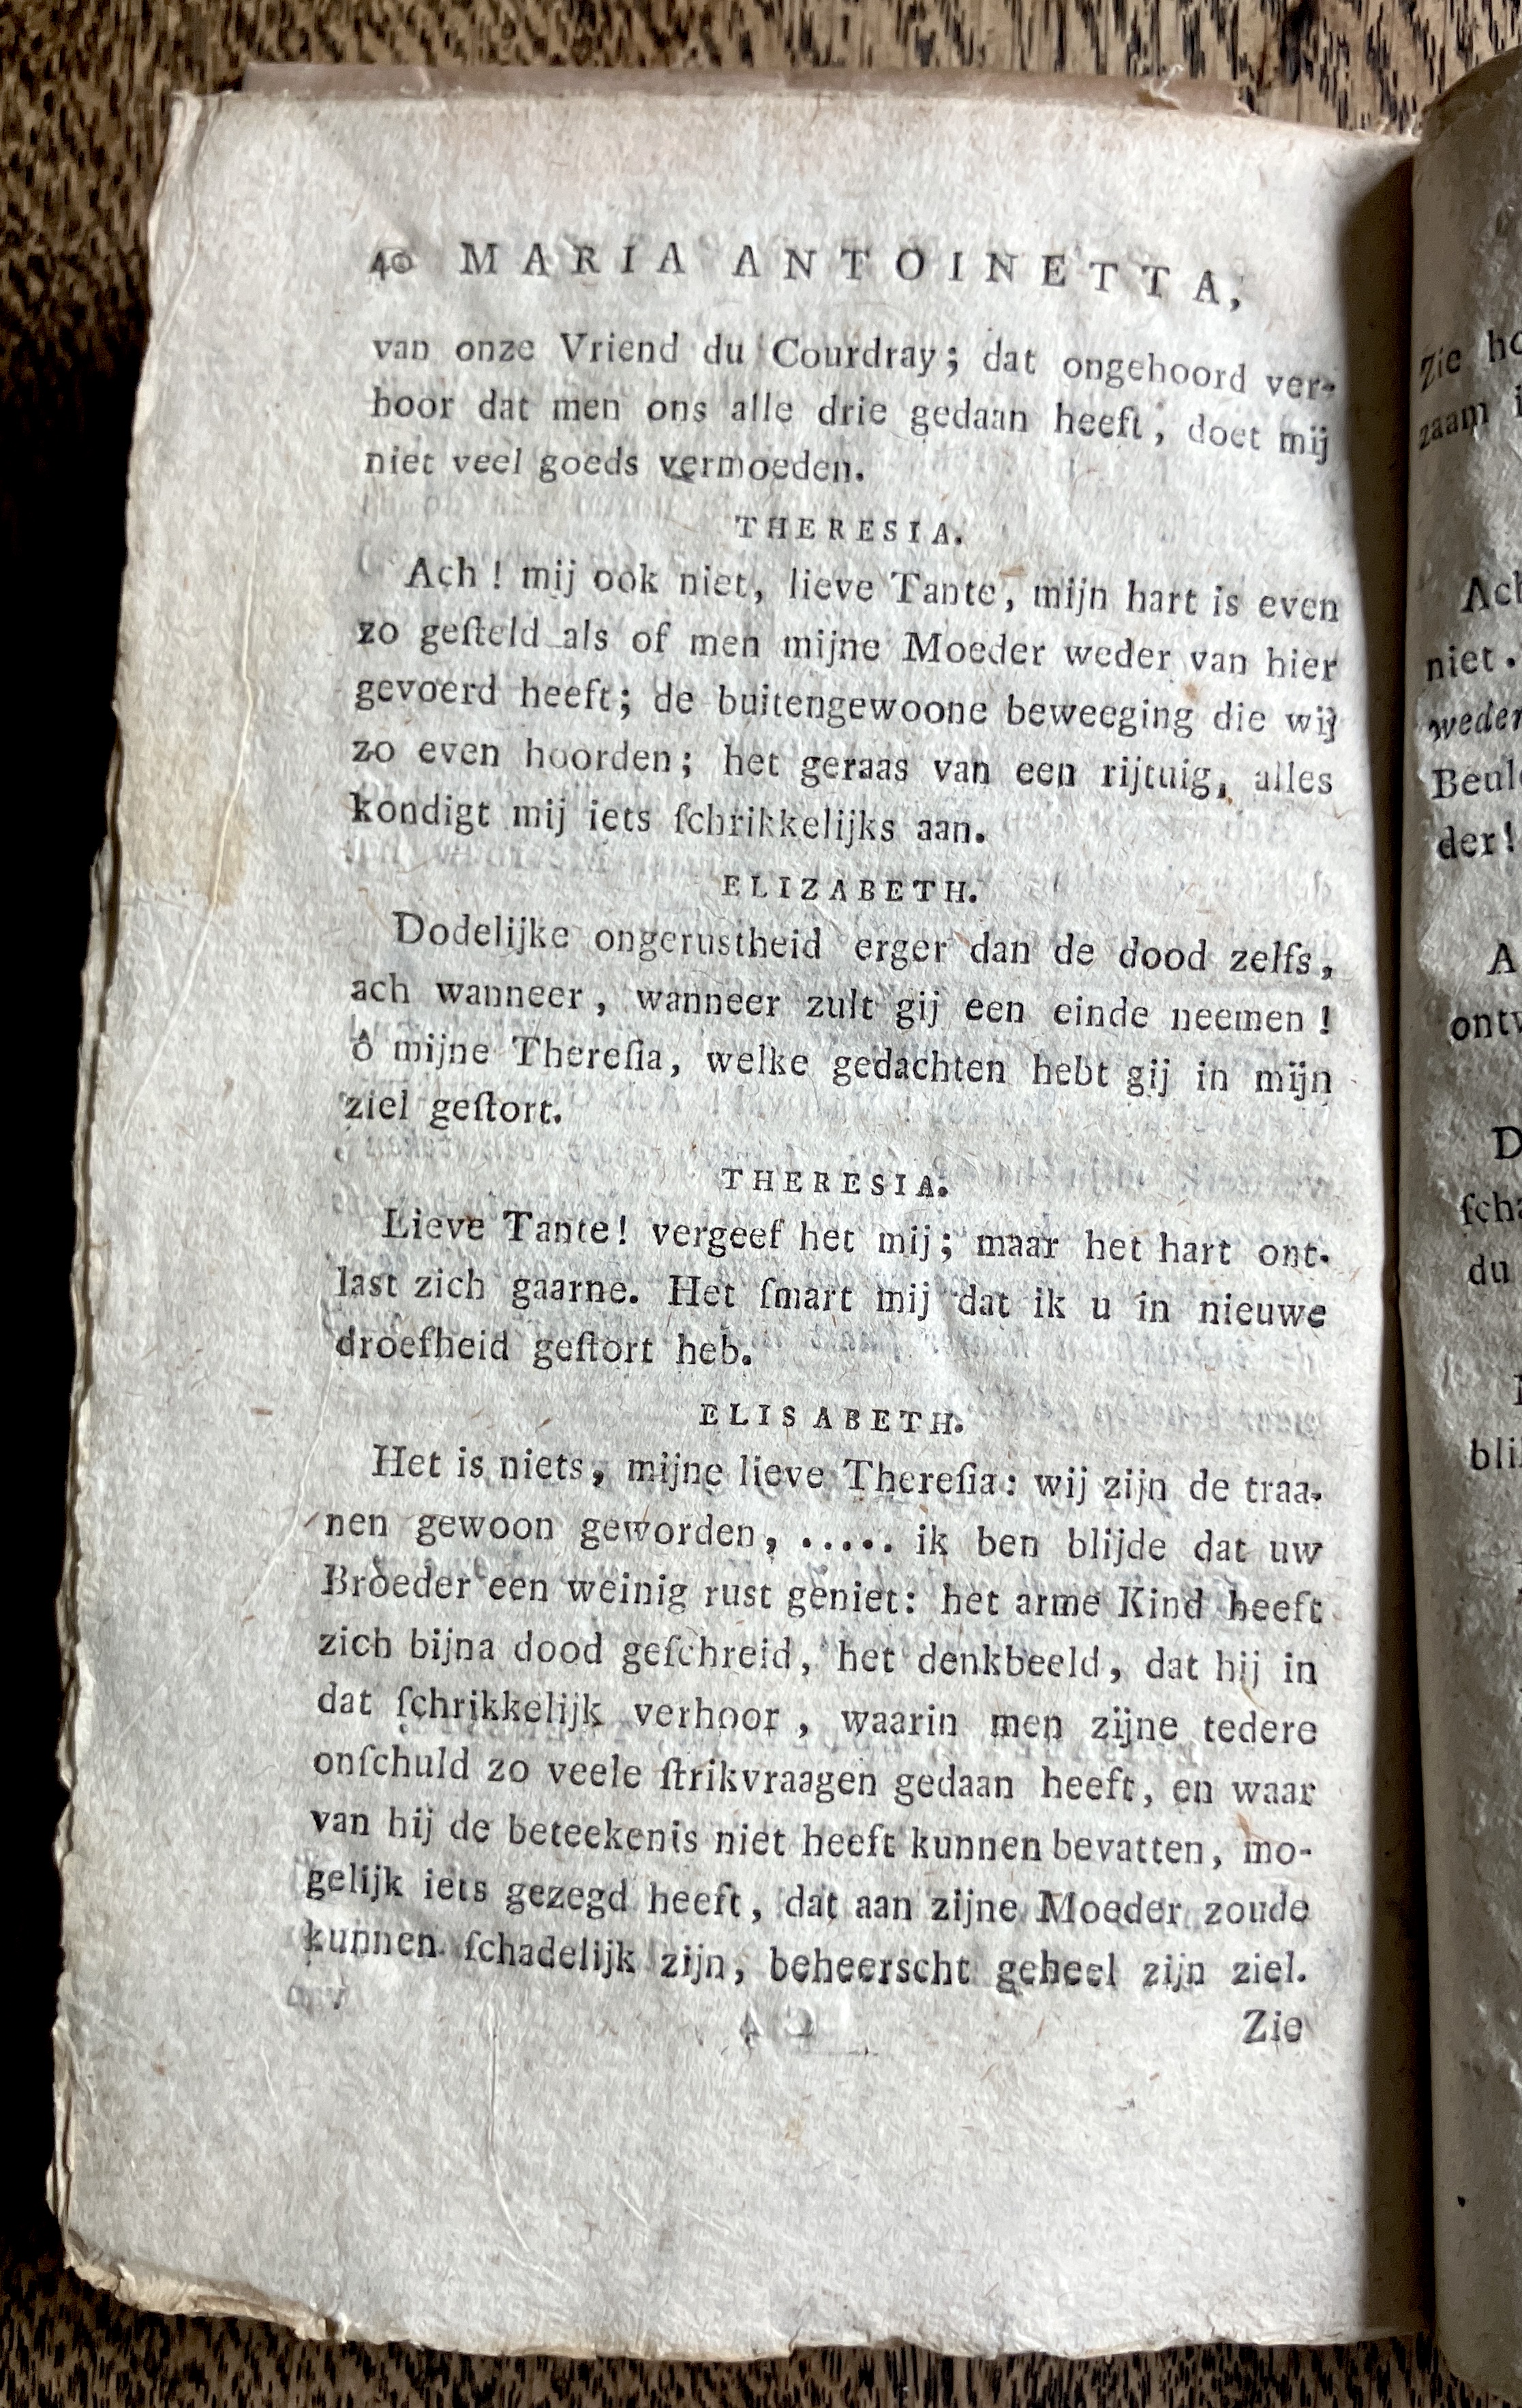 40 MARIA ANTOINETTA,
van onze Vriend du Courdray; dat ongehoord ver-
hoor dat men ons alle drie gedaan heeft, doet mij
niet veel goeds vermoeden.
THERESIA.
Ach! mij ook niet, lieve Tante, mijn hart is even
zo geſteld als of men mijne Moeder weder van hier
gevoerd heeft; de buitengewoone beweeging die wij
zo even hoorden; het geraas van een rijtuig, alles
kondigt mij iets ſchrikkelijks aan.
ELIZABETH.
Dodelijke ongerustheid erger dan de dood zelfs,
ach wanneer, wanneer zult gij een einde neemen!
ô mijne Thereſia, welke gedachten hebt gij in mijn
ziel geſtort.
THERESIA.
Lieve Tante! vergeef het mij; maar het hart ont-
last zich gaarne. Het ſmart mij dat ik u in nieuwe
droefheid geſtort heb.
ELISABETH.
Het is niets, mijne lieve Thereſia: wij zijn de traa-
nen gewoon geworden, ..... ik ben blijde dat uw
Broeder een weinig rust geniet: het arme Kind heeft
zich bijna dood geſchreid, het denkbeeld, dat hij in
dat ſchrikkelijk verhoor, waarin men zijne tedere
onſchuld zo veele ſtrikvraagen gedaan heeft, en waar
van hij de beteekenis niet heeft kunnen bevatten, mo-
gelijk iets gezegd heeft, dat aan zijne Moeder zoude
kunnen ſchadelijk zijn, beheerscht geheel zijn ziel.
Zie
Zie
zaam
niet.
der!
A
D
du